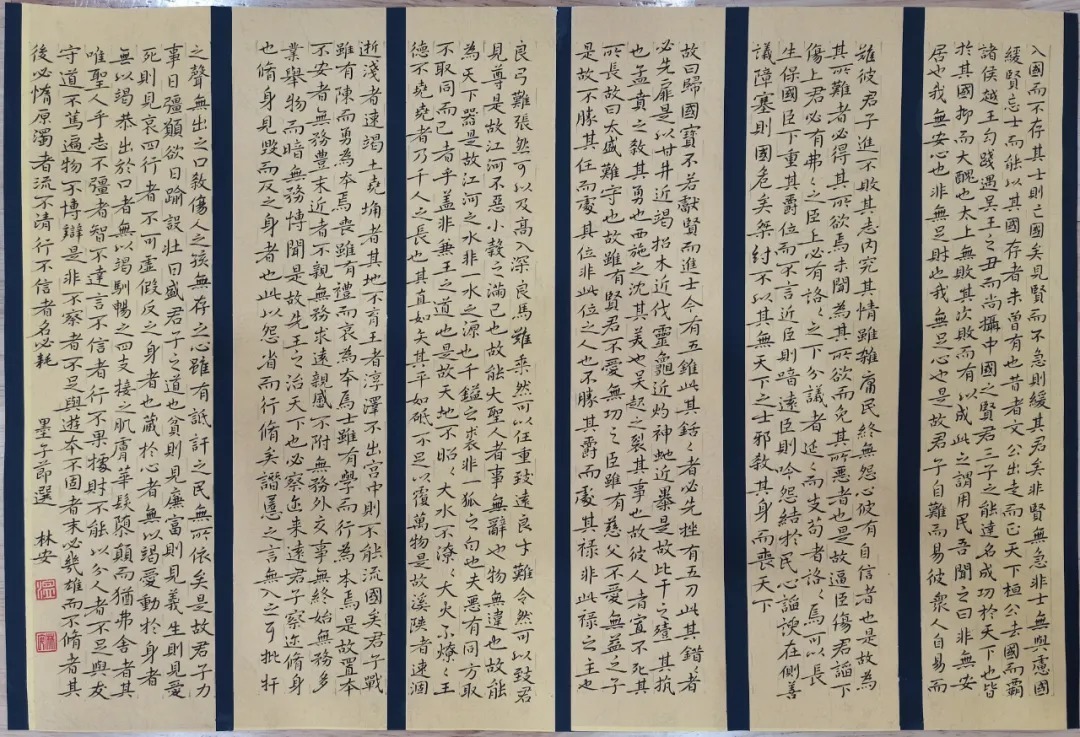 入國而不存其士則亡國矣見賢而不急則緩其君矣非賢無急非士無與慮國
緩賢忘士而能以其國存者未曾有也昔者文公出走而正天下桓公去國而霸
諸侯越王勾踐遇吳王之丑而尚攝中國之賢君三子之能達名成功於天下也皆
於其國抑而大醜也太上無敗其次敗而有以成此之謂用民吾聞之曰非無安
居也我無安心也非無足財也我無足心也是故君子自難而易彼衆人自易而
難彼君子進不敗其志內究其情雖雜庸民終無怨心彼有自信者也是故為
其所難者必得其所欲焉未聞為其所欲而免其所惡者也是故逼臣傷君諂下
傷上君必有弗々之臣上必有詻々之下分議者延々而支苟者詻々焉可以長
生保國臣下重其爵位而不言近臣則喑遠臣則唫怨結於民心諂諛在側善
議障塞則國危矣桀紂不以其無天下之士邪殺其身而喪天下
故曰歸國寶不若獻賢而進士今有五錐此其銛々者必先挫有五刀此其錯々者
必先靡是以甘井近竭招木近伐靈龜近灼神蛇近暴是故比干之殪其抗
也孟賁之殺其勇也西施之沈其美也吳起之裂其事也故彼人者寡不死其
所長故曰太盛難守也故雖有賢君不愛無功之臣雖有慈父不愛無益之子
是故不勝其任而處其位非此位之人也不勝其爵而處其祿非此祿之主也
良弓難張然可以及高入深良馬難乘然可以任重致遠良才難令然可以致君
見尊是故江河不惡小穀之滿己也故能大聖人者事無辭也物無違也故能
為天下器是故江河之水非一水之源也千鎰之裘非一狐之白也夫惡有同方取
不取同而已者乎蓋非兼王之道也是故天地不昭々大水不潦々大火不燎々王
德不堯堯者乃千人之長也其直如矢其平如砥不足以覆萬物是故溪陝者速涸
逝淺者速竭土堯埆者其地不育王者淳澤不出宮中則不能流國矣君子戰
雖有陳而勇為本焉喪雖有禮而哀為本焉士雖有學而行為本焉是故置本
不安者無務豐末近者不親無務求遠親戚不附無務外交事無終始無務多
業舉物而暗無務博聞是故先王之治天下也必察邇來遠君子察邇脩身
也脩身見毀而反之身者也此以怨省而行脩矣譖慝之言無入之可批扞
之聲無出之口殺傷人之孩無存之心雖有詆訐之民無所依矣是故君子力
事日彊願欲日踰設壯日盛君子之道也貧則見廉富則見義生則見愛
死則見哀四行者不可虛假反之身者也藏於心者無以竭愛動於身者
無以竭恭出於口者無以竭馴暢之四支接之肌膚華髮隳顛而猶弗舍者其
唯聖人乎志不彊者智不達言不信者行不果據財不能以分人者不足與友
守道不篤遍物不博辯是非不察者不足與遊本不固者末必幾雄而不脩者其
後必惰原濁者流不清行不信者名必耗
墨子節選 林安